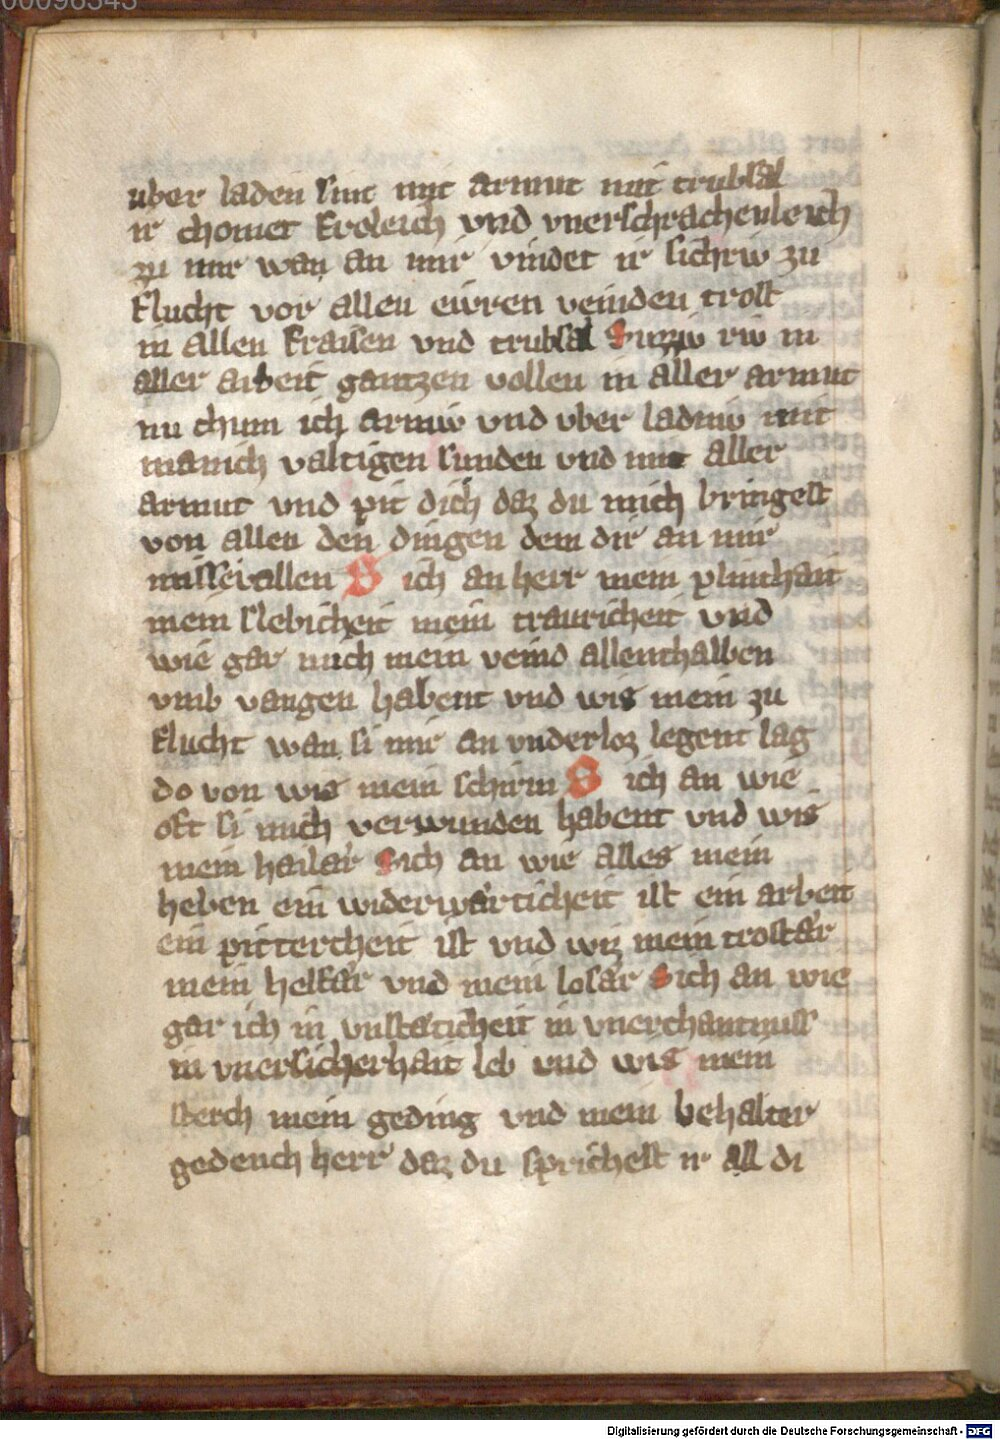 00096343
uber laden sint mit armut mit trubsal
ir chomet froleich vnd vnerschrachenleich
zu mir wan an mir vindet ir sichriw zu
flucht vor allen ewren veinden trost
in allen fraisen vnd trubsal Suzziw riw in
aller arbeit gantzen vollen in aller armut
nu chum ich armiw vnd vber ladniw mit
manich valtigen sunden vnd mit aller
armut vnd pit dich daz du mich bringest
von allen den dingen dem dir an mir
missevallen Sich an herr mein plinthait
mein slebicheit mein trauricheit vnd
wie gar mich mein veind allenthalben
vmb vangen habent vnd wis mein zu
flucht wan si mir an vnderloz legent lag
do von wis mein schirm Sich an wie
oft si mich verwunden habent vnd wis
mein hailar Sich an wie alles mein
heben ein widerwarticheit ist ein arbeit
ein pittercheit ist vnd wiz mein trostar
mein helfar vnd mein losar Sich an wie
gar ich in vnstaticheit in vnerchantnuss
in vnersicherhait leb vnd wis mein
sterch mein geding vnd mein behalter
gedench herr daz du sprichest ir all di
Digitalisierung gefördert durch die Deutsche Forschungsgemeinschaft - DFG